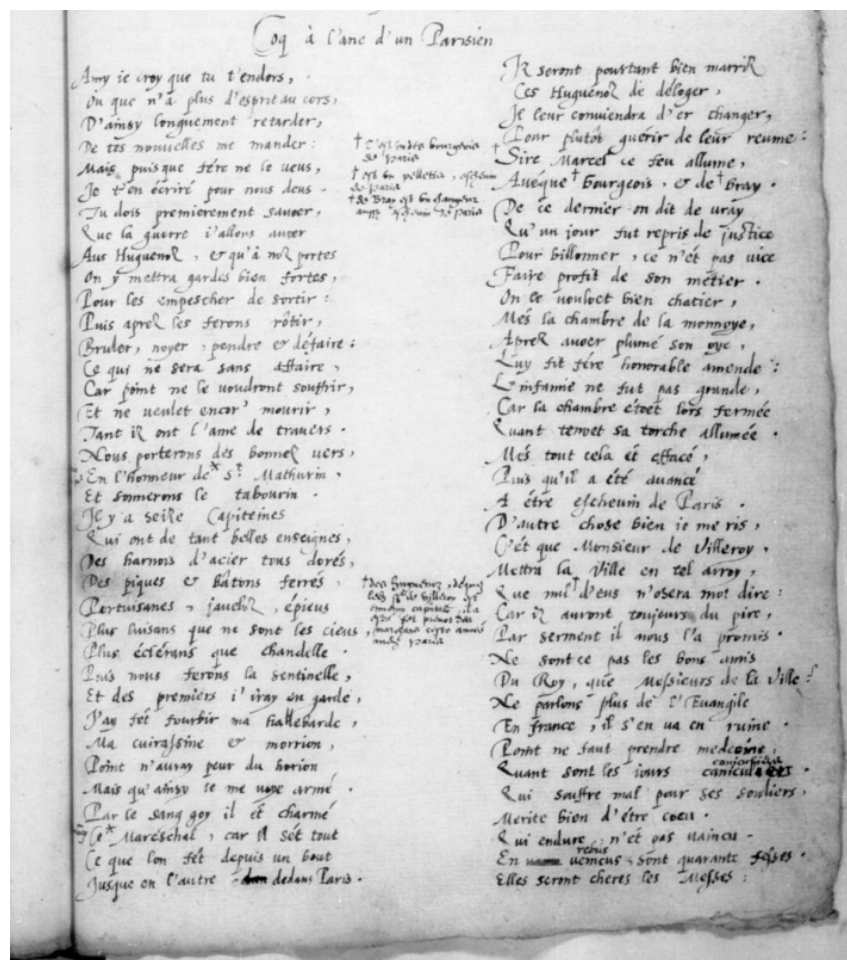 Coq à l'ane d'un Parisien
Amy ie croy que tu t'endors,
Ou que n'a plus d'esprit au cors,
D'ainsy longuement retarder,
De tes nouvelles me mander:
Mais puisque fére ne le veus,
Je t'en écriré pour nous deus.
Tu dois premierement savoer,
Que la guerre i'allons avoer
Aus Huguenoz, & qu'à noz portes
On y mettra gardes bien fortes,
Pour les empescher de sortir:
Puis aprez les ferons rôtir,
Bruler, noyer, pendre & défaire:
Ce qui ne sera sans affaire,
Car point ne le voudront souffrir,
Et ne veulet encor' mourir,
Tant iz ont l'ame de travers.
Nous porterons des bonnez vers,
En l'honneur de* St. Mathurin,
Et sonnerons le tabourin.
Il y a seize Capiteines
Qui ont de tant belles enseignes,
Des harnois d'acier tous dorés,
Des piques & bâtons ferrés,
Pertuisanes, jauelōz, épieus
Plus luisans que ne sont les cieus,
Plus éclérans que chandelle.
Puis nous ferons la sentinelle,
Et des premiers i'iray en garde,
J'ay fét fourbir ma hallebarde,
Ma cuirassine & morrion,
Point n'auray peur du horion
Mais qu'ainsy ie me voye armé.
Par le sang goy il ét charmé
Ce* Maréschal, car il sét tout
Ce que lon fét depuis un bout
Jusque en l'autre dedans Paris.
† C'est un des bourgeois
de Paris
† est un pelletier, eschevin
de Paris
† de Bray est un changeur
aussy eschevin de Paris
† des huguenoz, desquelz
le Sr de Villeroy est
capital, il a
esté fét prevot des
marchans cette année
Paris
Iz seront pourtant bien marriz
Ces Huguenoz de déloger,
Il leur conviendra d'er changer,
Pour plutôt guerir de leur reume:
† Sire Marcel ce feu allume,
Avéque † Bourgeois, & de † Bray.
De ce dernier on dit de vray
Qu'un jour fut repris de justice
Pour billonner, ce n'ét pas vice
Faire profit de son métier.
On le vouloet bien chatier,
Més la chambre de la monnoye,
Aprez avoer plumé son oye,
Luy fit fére honorable amende:
L'infamie ne fut pas grande,
Car la chambre étoet lors fermée
Quant tenoet sa torche allumée.
Més tout cela ét effacé,
Puis qu'il a été avancé
A étre escheuin de Paris.
D'autre chose bien ie me ris,
C'ét que Monsieur de Villeroy,
Mettra la Ville en tel arroy,
Que nul † d'eus n'osera mot dire:
Car iz auront toujours du pire,
Par serment il nous l'a promis.
Ne sont ce pas les bons amis
Du Roy, que Messieurs de la Ville?
Ne parlons plus de l'Evangile
En france, il s'en va en ruine.
Point ne faut prendre medecine,
Quant sont les iours caniculiers.
Qui souffre mal pour ses souliers,
Merite bien d'étre cocu.
Qui endure, n'ét pas vaincu.
rebus
En vemeus sont quarante fesses.
Elles seront cheres les Messes: